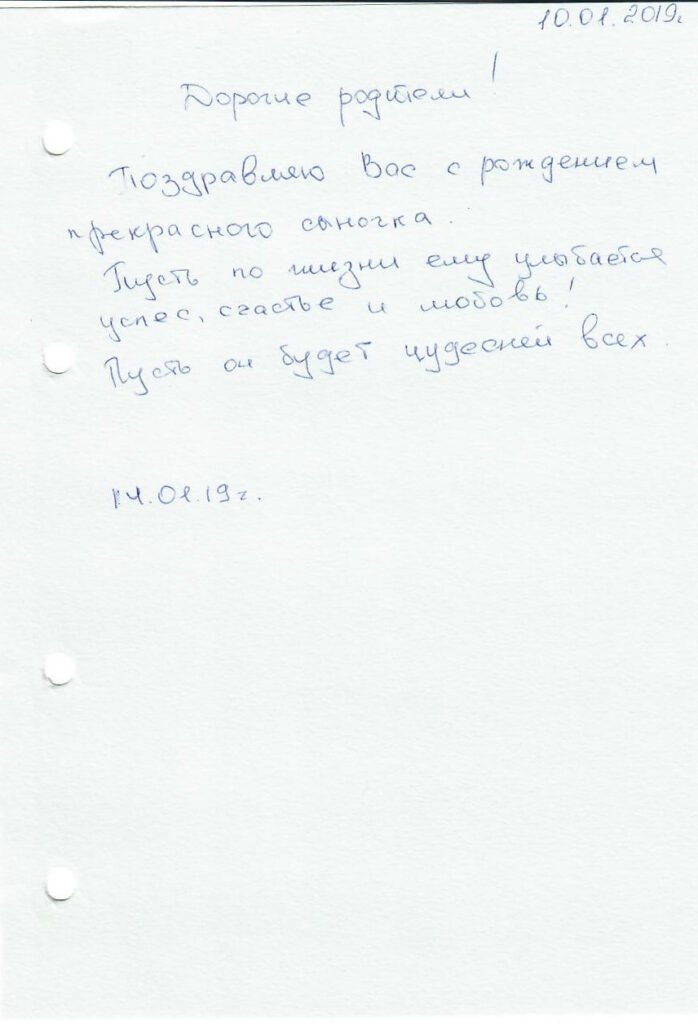 10.01.2019г
Дорогие родители!
Поздравляю Вас с рождением
прекрасного сыночка.
Пусть по жизни ему улыбается
успес, счастье и любовь!
Пусть он будет чудесней всех.
14.01.19г.